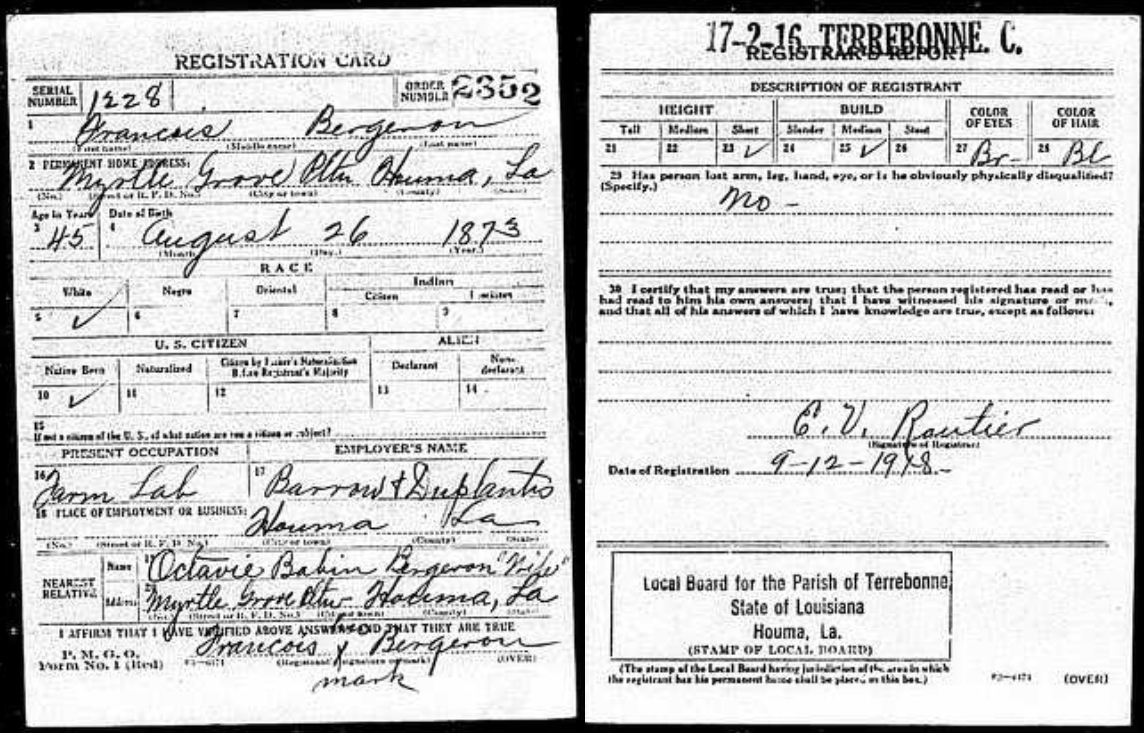 REGISTRATION CARD
SERIAL NUMBER 1228 ORDER NUMBER 2352
1 Francois Bergeron
(First name) (Middle name) (Last name)
2 PERMANENT HOME ADDRESS:
Myrtle Grove Pltn Houma, La
(No.) (Street or R. F. D. No.) (City or town) (County) (State)
Age in Years Date of Birth
3 45 4 August 26 1873
(Month.) (Day.) (Year.)
RACE
White Negro Oriental Indian
Citizen
5 ✓ 6 7 8 9
U. S. CITIZEN ALIEN
Native Born Naturalized Citizen by Father's Naturalization Before Registrant's Majority Declarant Non-declarant
10 ✓ 11 12 13 14
15
If not a citizen of the U. S., of what nation are you a citizen or subject?
PRESENT OCCUPATION EMPLOYER'S NAME
16 Farm Lab 17 Barrow & Duplantis
18 PLACE OF EMPLOYMENT OR BUSINESS:
Houma La
(No.) (Street or R. F. D. No.) (City or town) (County) (State)
NEAREST RELATIVE
Name 19 Octavie Babin Bergeron "Wife"
Address 20 Myrtle Grove Pltn Houma, La
(No.) (Street or R. F. D. No.) (City or town) (County) (State)
I AFFIRM THAT I HAVE VERIFIED ABOVE ANSWERS AND THAT THEY ARE TRUE
P. M. G. O.
Form No. 1 (Red)
his
Francois x Bergeron
(Registrant's signature or mark) (OVER)
mark
17-2-16 TERREBONNE. C.
REGISTRAR'S REPORT
DESCRIPTION OF REGISTRANT
HEIGHT BUILD COLOR OF EYES COLOR OF HAIR
Tall Medium Short Slender Medium Stout
21 22 23 ✓ 24 25 ✓ 26 27 Br- 28 Bl
29 Has person lost arm, leg, hand, eye, or is he obviously physically disqualified?
(Specify.)
No -
30 I certify that my answers are true; that the person registered has read or has
had read to him his own answers; that I have witnessed his signature or mark,
and that all of his answers of which I have knowledge are true, except as follows:
E. V. Rautier
(Signature of Registrar)
Date of Registration 9-12-1918-
Local Board for the Parish of Terrebonne,
State of Louisiana
Houma, La.
(STAMP OF LOCAL BOARD)
(The stamp of the Local Board having jurisdiction of the area in which
the registrant has his permanent home shall be placed in this box.)
(OVER)